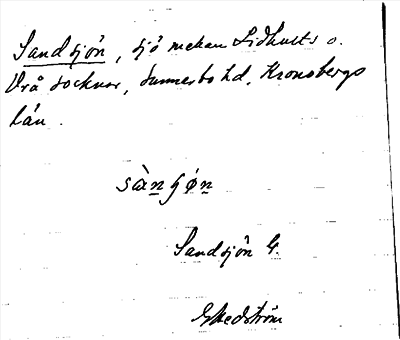 Sandsjön, sjö mellan Lidhults o.
Vrå socknar, Sunnerbo hd, Kronobergs
län.
sànʃön
Sandsjön G.